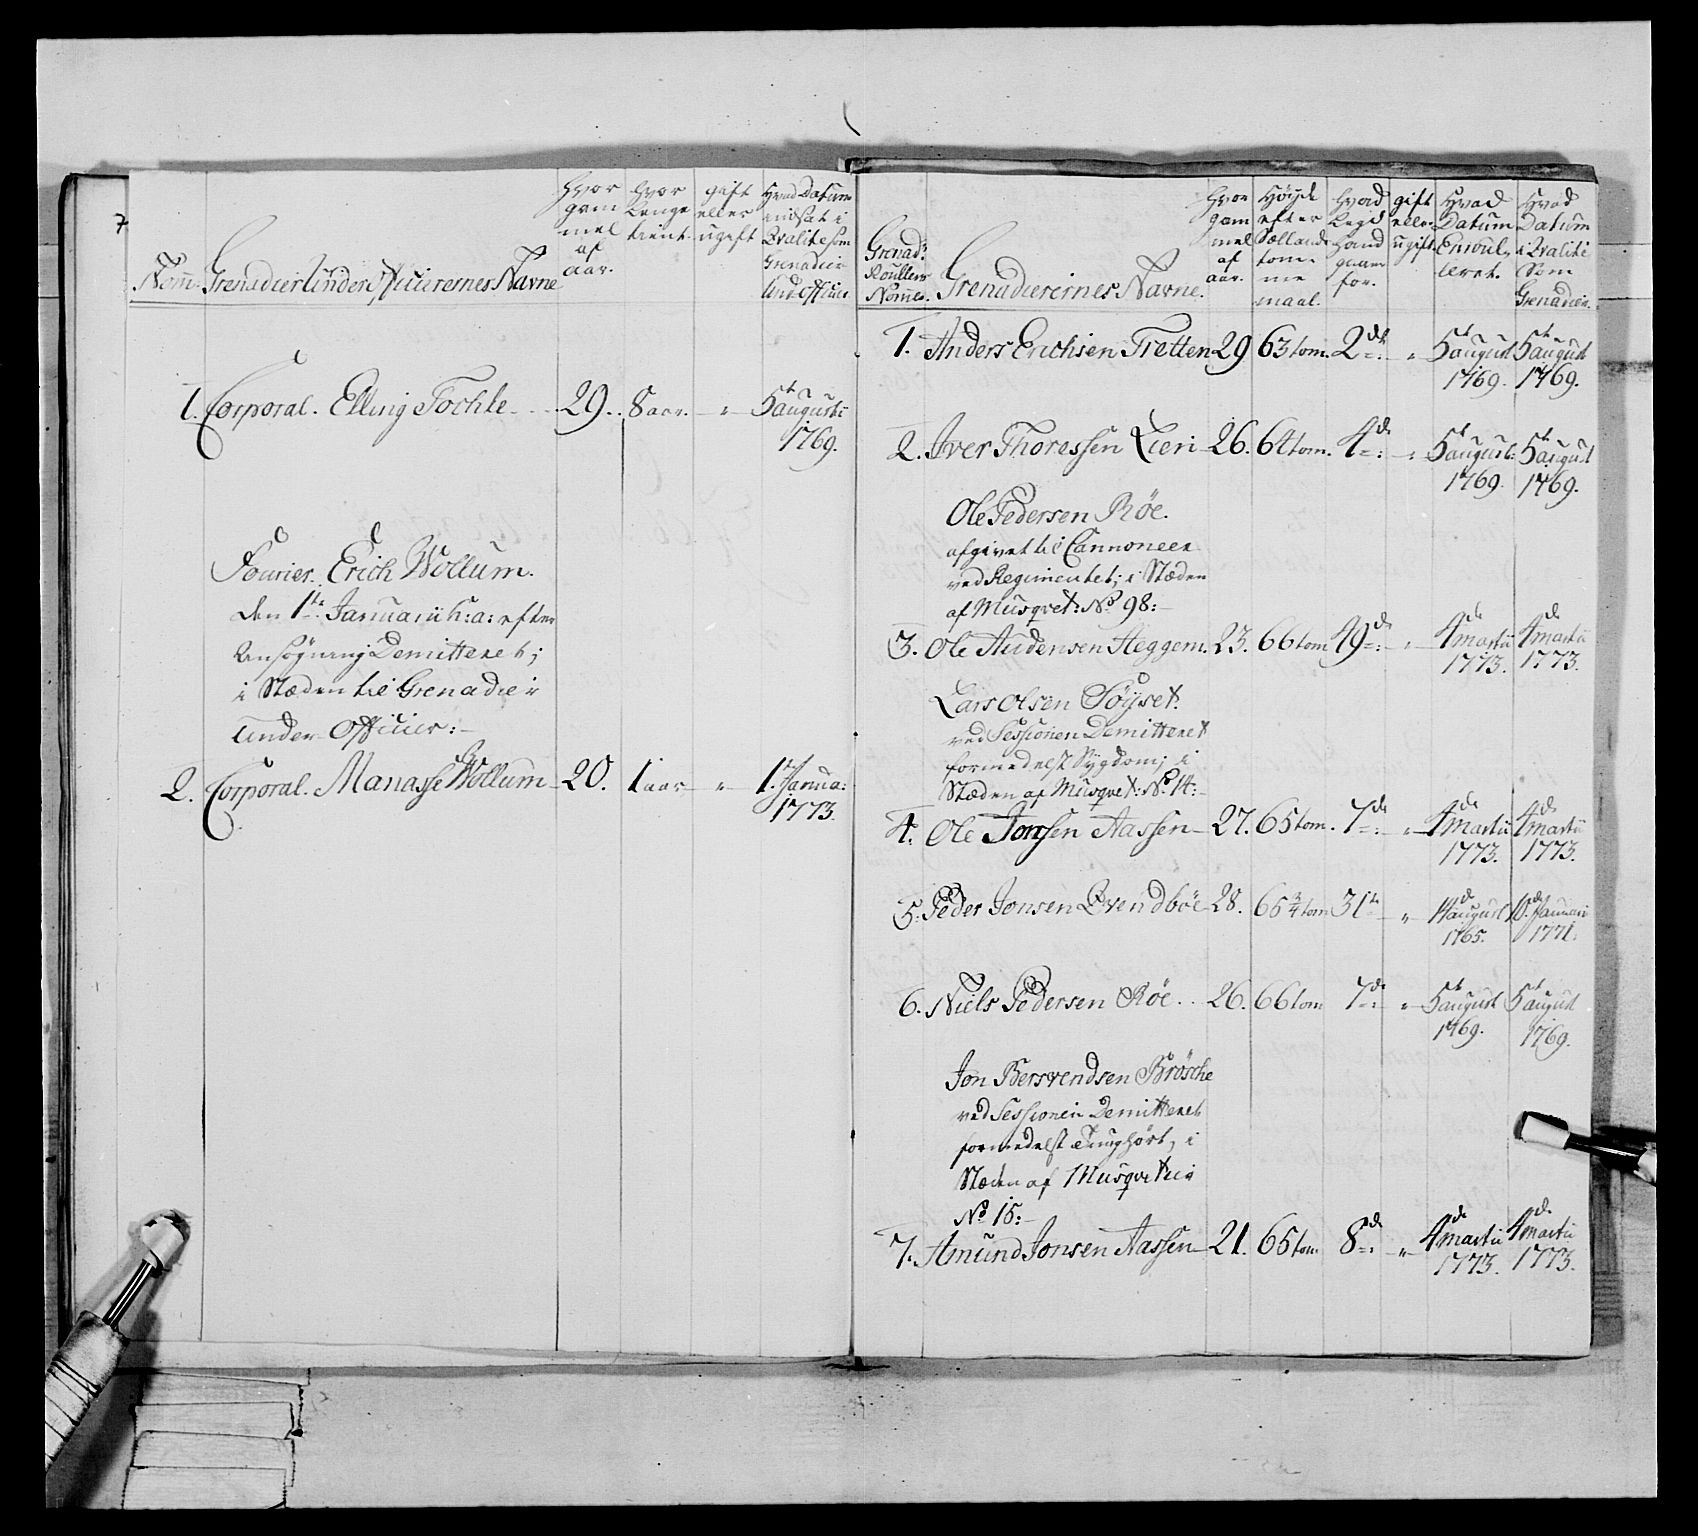 7
Nom̃.
Grenadier Under Officierernes Navne
Hvor gam mel af aar.
Hvor Lenge tient.
gift eller ugift
Hvad Datum indsat i Qvalite som Grenadier Und: Officier
1. Corporal. Elling Tochle 29. 8 aar. " 5t augusti 1769.
Fourier. Erich Wollum.
den 1te Januarii h: a: efter
Ansøgning Demitteret;
i Stæden til Grenadier
Under Officier:
2. Corporal. Manasse Wollum 20. 1 aar " 1. Janua: 1773.
Grenad: Roullens Nomer.
Grenadierernes Navne.
Hvor gam mel af aar.
Høyde efter Sællands tom me maal.
Hvad Legd Hand gaaer for.
gift eller ugift
Hvad Datum Enroul leret.
Hvad Datum i Qvalite Som Grenadier.
1. Anders Erichsen Tretten 29 63 tom. 2de " 5t august 1769. 5t august 1769.
2. Iver Thoressen Lieri 26. 64 tom. 4de " 5t august: 1769. 5t august 1769.
Ole Pedersen Røe.
afgivet til Cannoneer
ved Regimentet; i Stæden
af Musqvet: No 98:
3. Ole Audensen Heggem. 23. 66 tom 49de " 4de martii 1773. 4de martii 1773.
Lars Olsen Søyset.
ved Sessionen Demitteret
formedelst Sygdom; i
Stæden af Musqvet: No 14:
4. Ole Jonsen Aassen 27. 65 tom. 7de " 4de Martii 1773. 4de martii 1773.
5. Peder Jonsen Qvendbøe 28. 65 3/4 tom 31te " 14de august 1765. 10de Januari 1771.
6. Niels Pedersen Røe 26. 66 tom 7de " 5t august 1769. 5t august 1769.
Jon Bersvendsen Brøsche
ved Sessionen Demitteret
formedelst Tunghørt, i
Stæden af Musqveteir
No 15:
7. Amund Jonsen Aassen 21. 65 tom 8de " 4de martii 1773. 4de martii 1773.